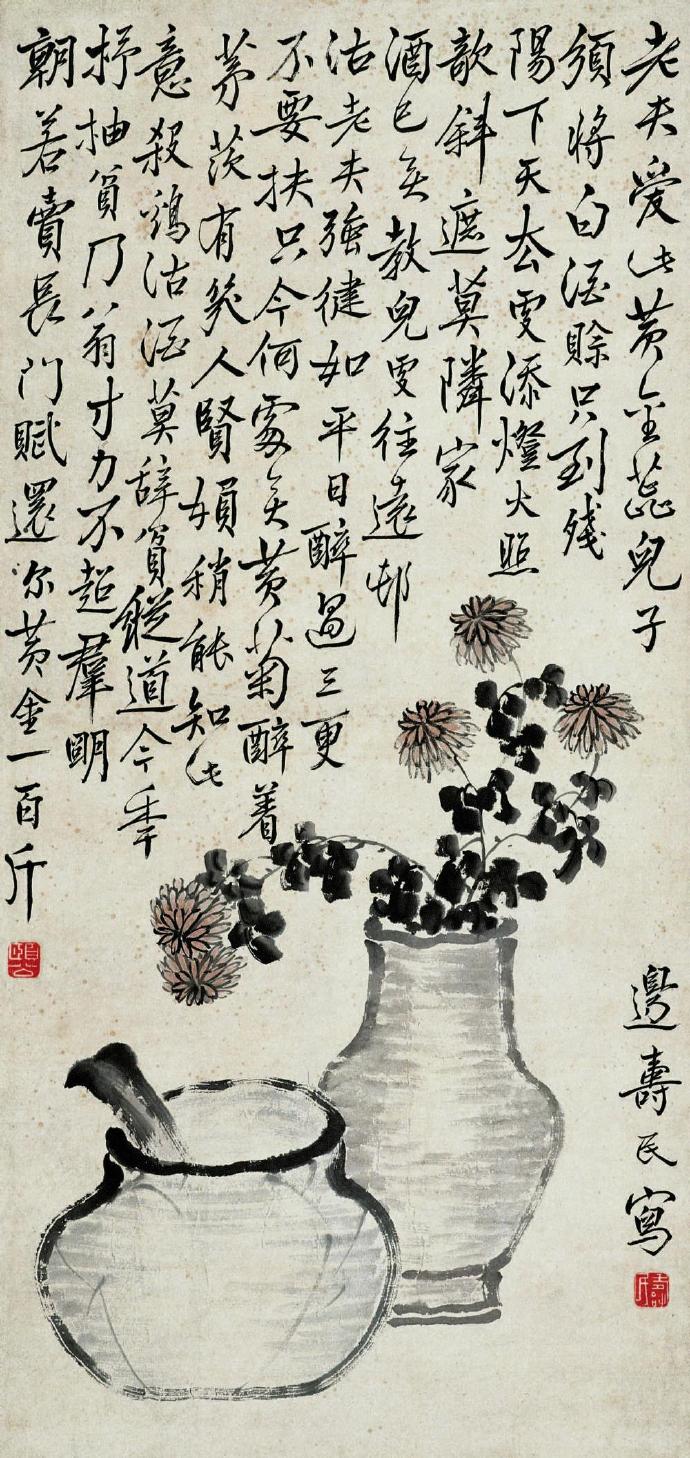 老夫愛此黃金蕊兒子
須將白酒賒只到殘
陽下天去更添燈火照
欹斜遮莫隣家
酒已无教兒更往遠邨
沽老夫強健如平日醉過三更
不要扶只今何處无黃菊醉着
茅茨有幾人賢婦稍能知此
意殺鷄沽酒莫辭貧縱道今年
抒柚貧乃翁才力不超羣明
朝若賣長門賦還尔黃金一百斤
頤公
邊壽民寫
壽民